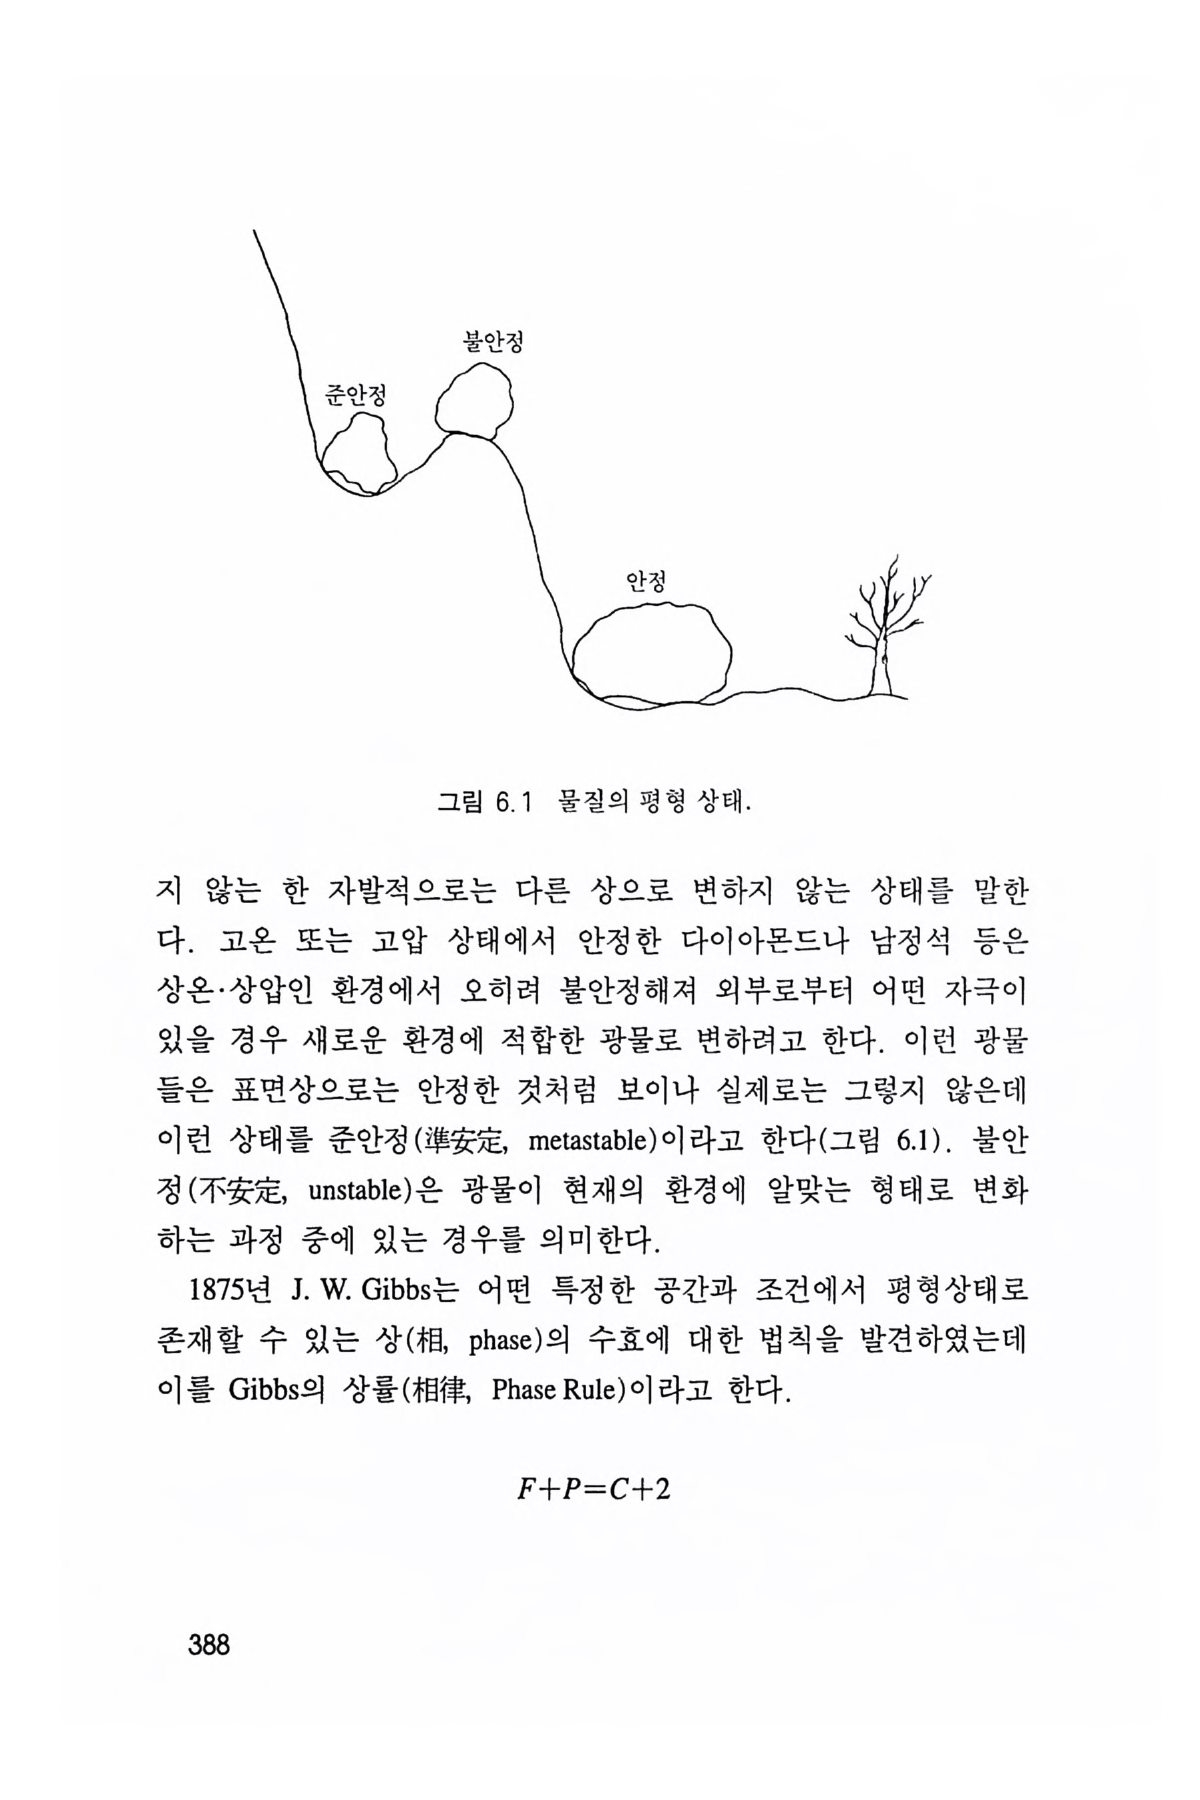 불안정
준안정
안정
그림 6.1 물질의 평형 상태.
지 않는 한 자발적으로는 다른 상으로 변하지 않는 상태를 말한
다. 고온 또는 고압 상태에서 안정한 다이아몬드나 남정석 등은
상온·상압인 환경에서 오히려 불안정해져 외부로부터 어떤 자극이
있을 경우 새로운 환경에 적합한 광물로 변하려고 한다. 이런 광물
들은 표면상으로는 안정한 것처럼 보이나 실제로는 그렇지 않은데
이런 상태를 준안정(準安定, metastable)이라고 한다(그림 6.1). 불안
정(不安定, unstable)은 광물이 현재의 환경에 알맞는 형태로 변화
하는 과정 중에 있는 경우를 의미한다.
1875년 J. W. Gibbs는 어떤 특정한 공간과 조건에서 평형상태로
존재할 수 있는 상(相, phase)의 수효에 대한 법칙을 발견하였는데
이를 Gibbs의 상률(相律, Phase Rule)이라고 한다.
F+P=C+2
388